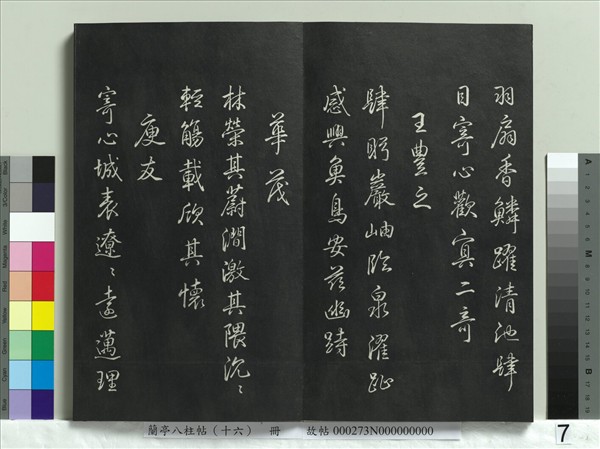 羽扇香鱗躍清池肆
目寄心歡冥二奇
王豐之
肆眄巖岫臨泉濯趾
感興魚鳥安茲幽跱
華茂
林榮其蔚澗激其隈汎〻
輕觴載欣其懷
庾友
寄心城表遼〻遠邁理
蘭亭八柱帖（十六） 冊 故帖 000273N000000000
7
Black
3/Color
White
Magenta
Red
Yellow
Green
Cyan
Blue
A
M
B